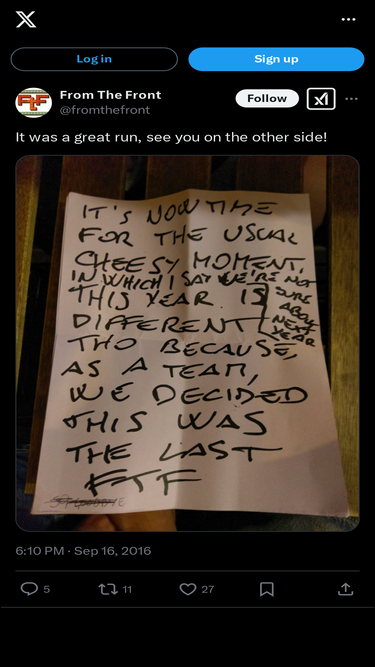 Log in
Sign up
FTF
From The Front
@fromthefront
Follow
It was a great run, see you on the other side!
IT'S NOW TIME
FOR THE USUAL
CHEESY MOMENT,
IN WHICH I SAY WE'RE NOT
SURE
ABOUT
NEXT
YEAR
THIS YEAR IS
DIFFERENT
THO BECAUSE,
AS A TEAM,
WE DECIDED
THIS WAS
THE LAST
FTF
6:10 PM · Sep 16, 2016
5
11
27